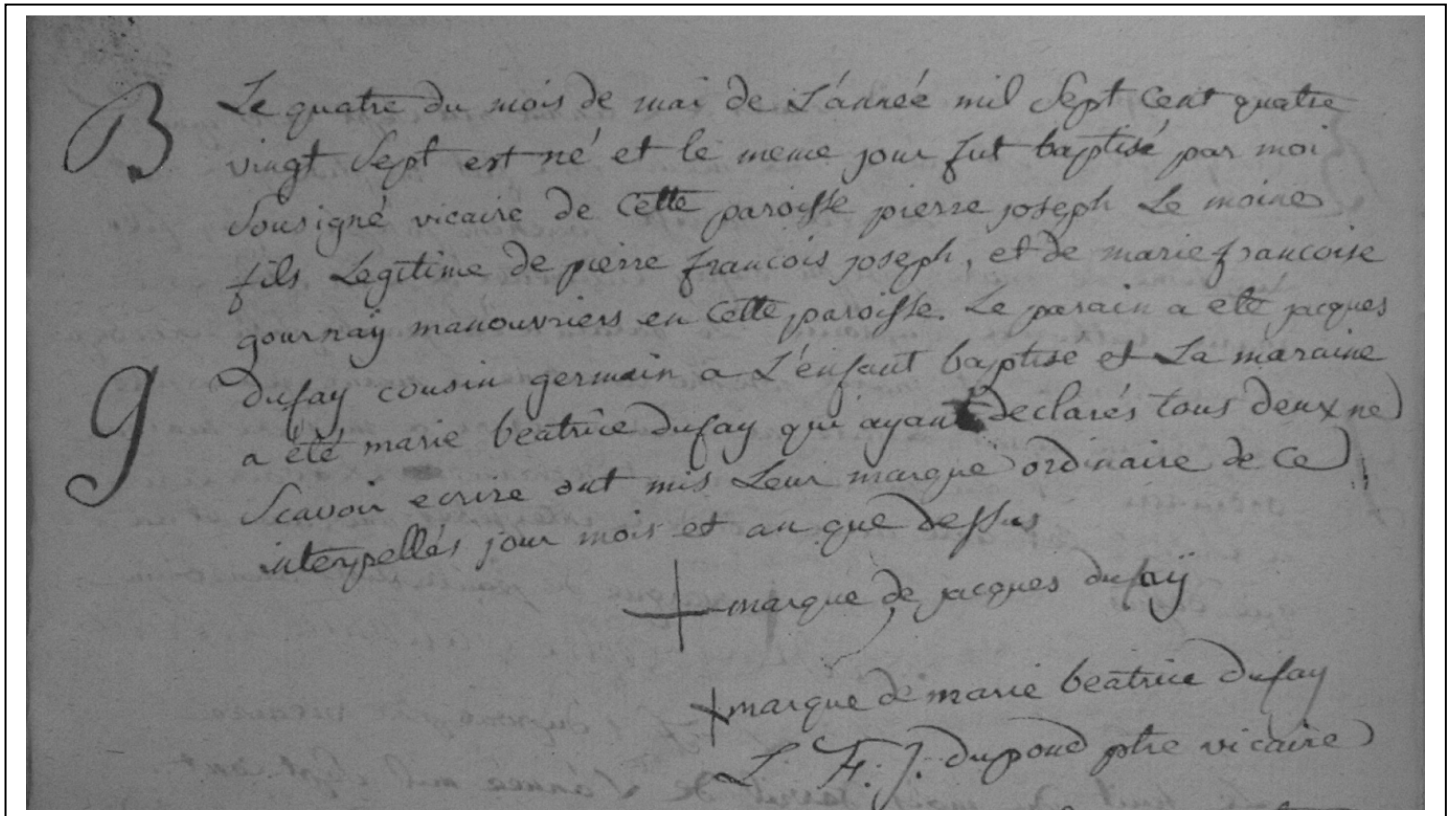 B
Le quatre du mois de mai de L'année mil Sept Cent quatre
vingt Sept est né et le meme jour fut baptisé par moi
Sousigné vicaire de Cette paroisse pierre joseph Le moine
fils Legitime de pierre francois joseph, et de marie francoise
gournaÿ manouvriers en Cette paroisse. Le parain a eté jacques
g
Dufay cousin germain a L'enfant baptise et La maraine
a été marie beatrice dufay qui ayant declarés tous deux ne
Scavoir ecrire ont mis Leur marque ordinaire de Ce
interpellés jour mois et an que dessus
marque de jacques dufaÿ
marque de marie beatrice dufay
L. F. J. dupond ptre vicaire